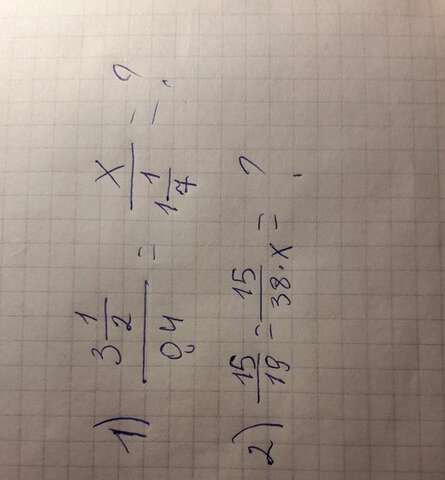 1) 3 1/2 / 0,4 = x / 1 1/7 = ?
2) 15/19 = 15/38·x = ?